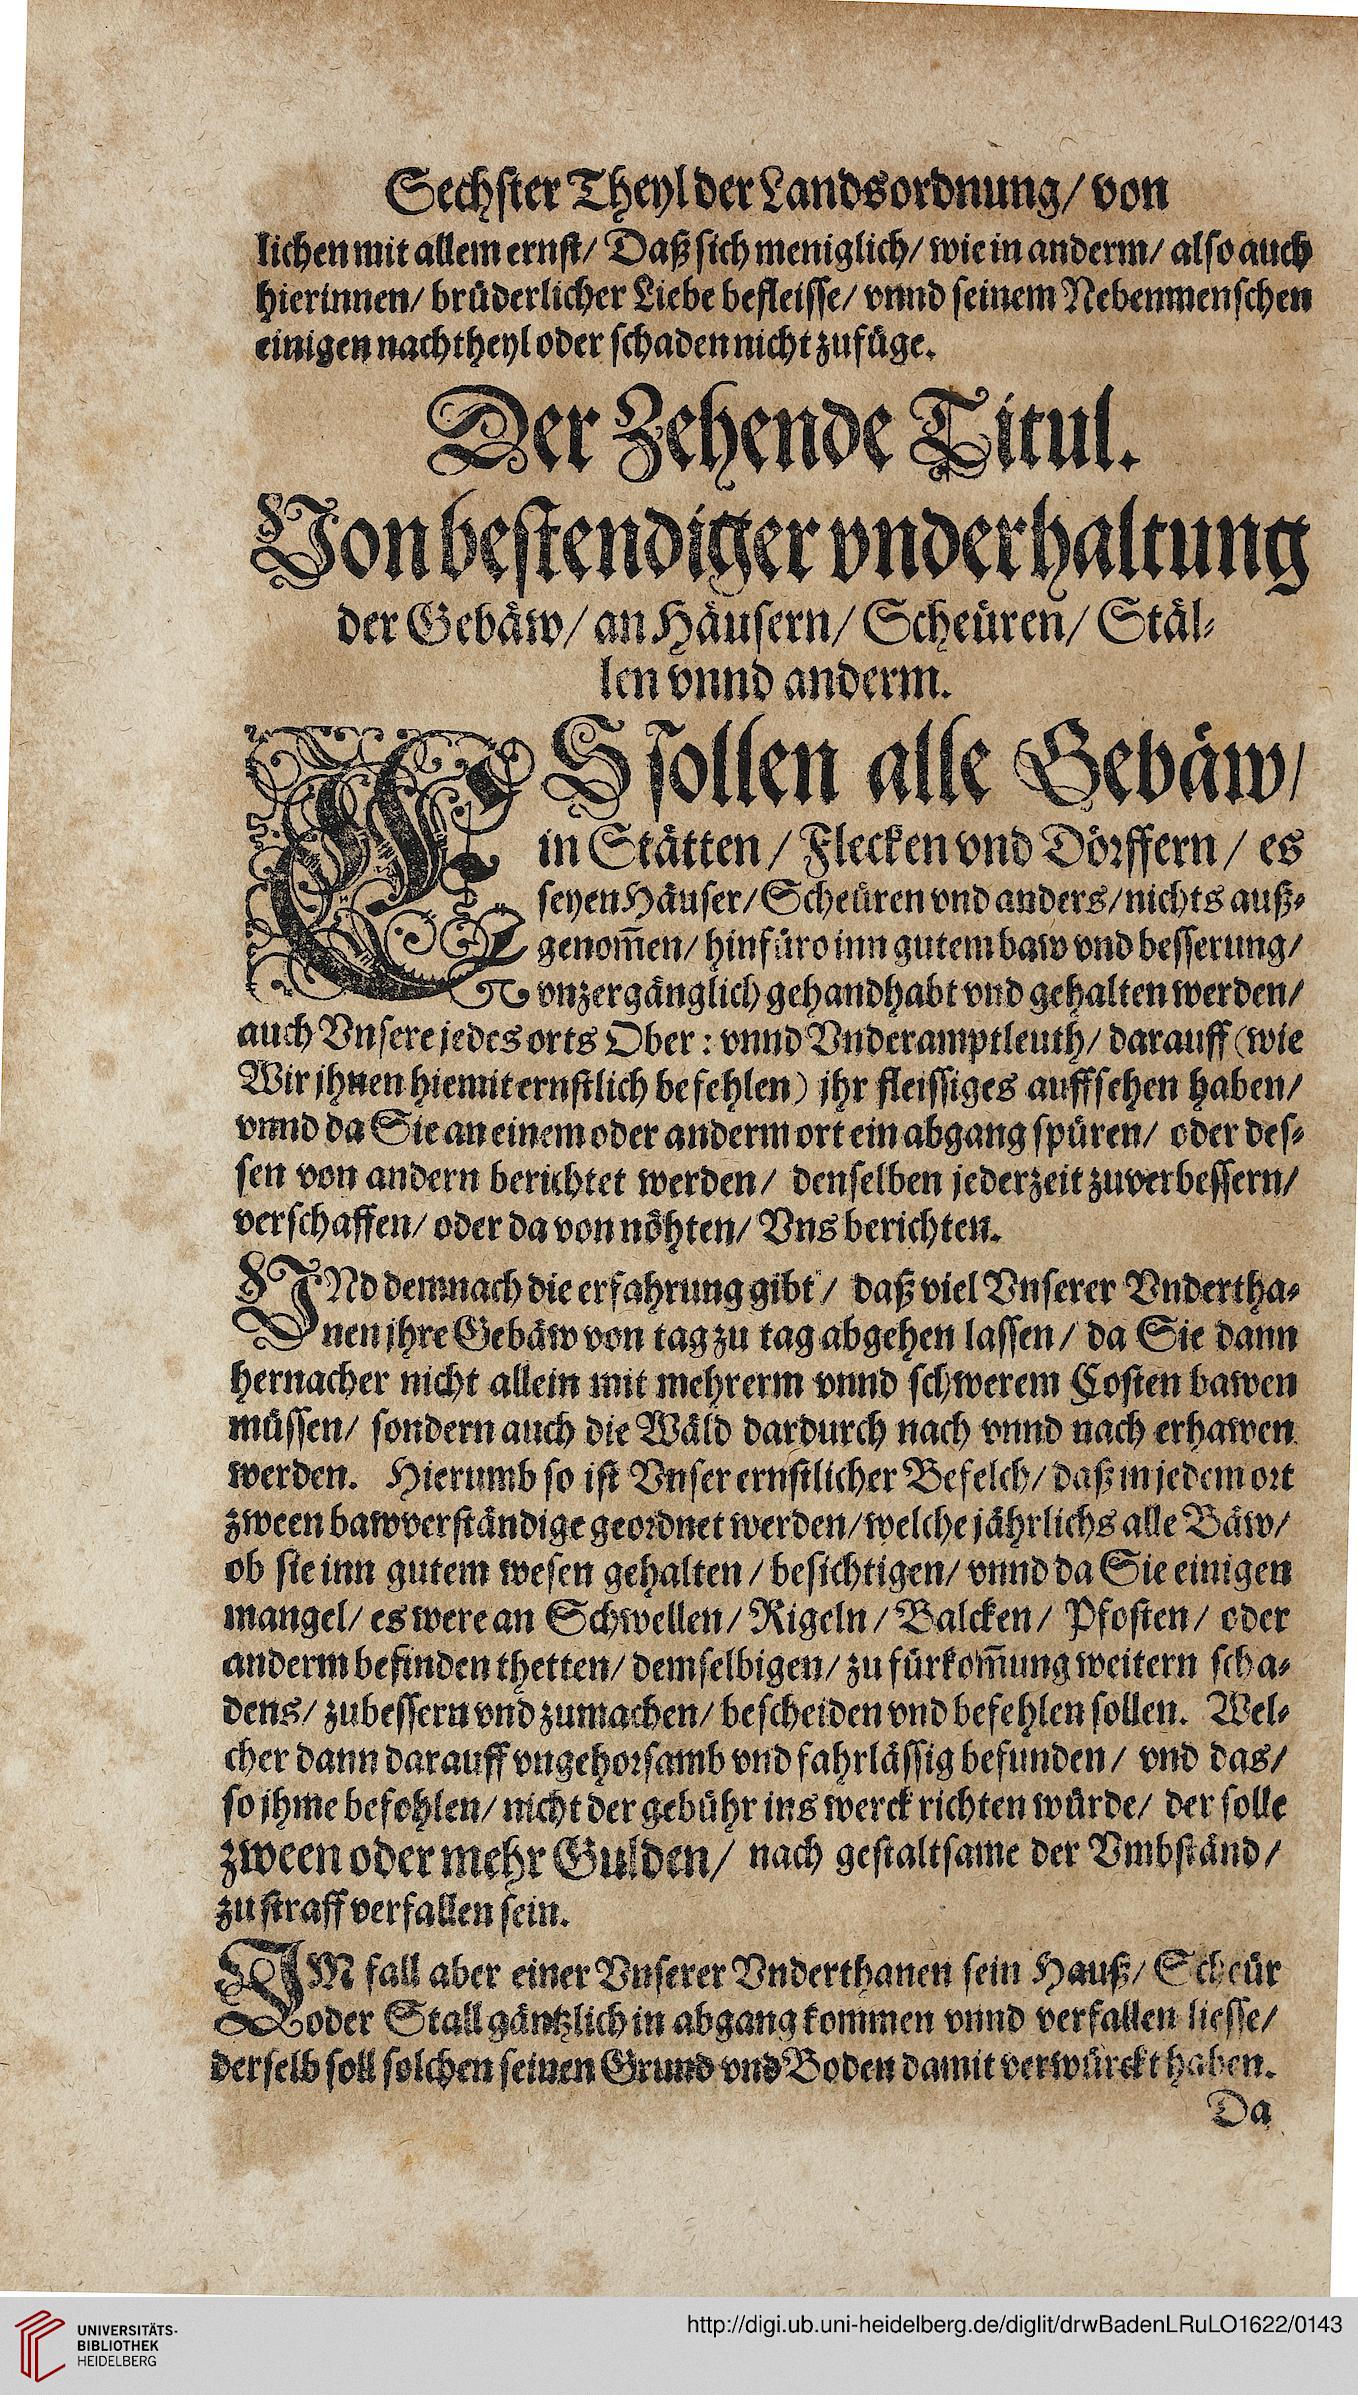 Sechster Theyl der Landsordnung/ von
lichen mit allem ernst/ Daß sich meniglich/ wie in anderm/ also auch
hierinnen/ brüderlicher Liebe befleisse/ vnnd seinem Nebenmenschen
einigen nachtheyl oder schaden nicht zufüge.
Der Zehende Titul.
Von bestendiger vnderhaltung
der Gebäw/ an Häusern/ Scheüren/ Stäl-
len vnnd anderm.
ES sollen alle Gebäw/
in Stätten / Flecken vnd Dörffern / es
seyen Häuser/ Scheüren vnd anders/ nichts auß-
genom̄en/ hinfüro inn gutem baw vnd besserung/
vnzergänglich gehandhabt vnd gehalten werden/
auch Vnsere jedes orts Ober: vnnd Vnderamptleuth/ darauff (wie
Wir jhnen hiemit ernstlich befehlen) jhr fleissiges auffsehen haben/
vnnd da Sie an einem oder anderm ort ein abgang spüren/ oder des-
sen von andern berichtet werden/ denselben jederzeit zuverbessern/
verschaffen/ oder da von nöhten/ Vns berichten.
VNd demnach die erfahrung gibt / daß viel Vnserer Vndertha-
nen jhre Gebäw von tag zu tag abgehen lassen / da Sie dann
hernacher nicht allein mit mehrerm vnnd schwerem Costen bawen
müssen/ sondern auch die Wäld dardurch nach vnnd nach erhawen
werden. Hierumb so ist Vnser ernstlicher Befelch/ daß in jedem ort
zween bawverständige geordnet werden/ welche jährlichs alle Bäw/
ob sie inn gutem wesen gehalten / besichtigen/ vnnd da Sie einigen
mangel/ es were an Schwellen/ Rigeln / Balcken/ Pfosten/ oder
anderm befinden thetten/ demselbigen/ zu fürkom̄ung weitern scha-
dens/ zubessern vnd zumachen/ bescheiden vnd befehlen sollen. Wel-
cher dann darauff vngehorsamb vnd fahrlässig befunden / vnd das/
so jhme befohlen/ nicht der gebühr ins werck richten würde/ der solle
zween oder mehr Gulden/ nach gestaltsame der Vmbständ /
zu straff verfallen sein.
IM fall aber einer Vnserer Vnderthanen sein Hauß/ Scheür
oder Stall gäntzlich in abgang kommen vnnd verfallen liesse/
derselb soll solchen seinen Grund vnd Boden damit verwürckt haben.
Da
UNIVERSITÄTS-
BIBLIOTHEK
HEIDELBERG
http://digi.ub.uni-heidelberg.de/diglit/drwBadenLRuLO1622/0143